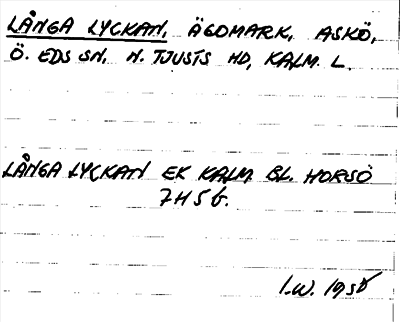 LÅNGA LYCKAN, ÄGOMARK, ASKÖ,
Ö. EDS SN, N. TJUSTS HD, KALM. L.
LÅNGA LYCKAN EK KALM. BL. HORSÖ
7H5b.
I.W. 195